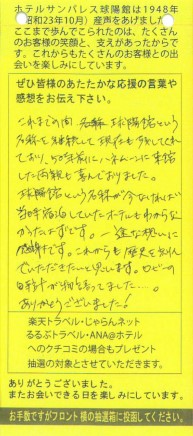 ホテルサンバレス球陽館は1948年
(昭和23年10月) 産声をあげました
ここまで歩んでこられたのは、たくさん
のお客様の笑顔と、支えがあったからで
す。これからもたくさんのお客様との出
会いを楽しみにしています。
ぜひ皆様のあたたかな応援の言葉や
感想をお伝え下さい。
これまでの間 名称 球陽館という
名称を継続して現在も
おり、50年前にハネムーンに来館
した両親も喜んでおりました。
球陽館という名称が今なければ
当時宿泊していたホテルもわからな
かったはずです。
感謝です。これからも歴史を刻ん
でいただきたいと思います。ロビーの
ありがとうございました!
楽天トラベル・じゃらんネット
るるぶトラベル・ANA@ホテル
へのクチコミの場合もプレゼント
抽選の対象とさせていただきます。
ありがとうございました。
またお会いできる日を楽しみにしています。
お手数ですがフロント横の抽選箱に投函してください。